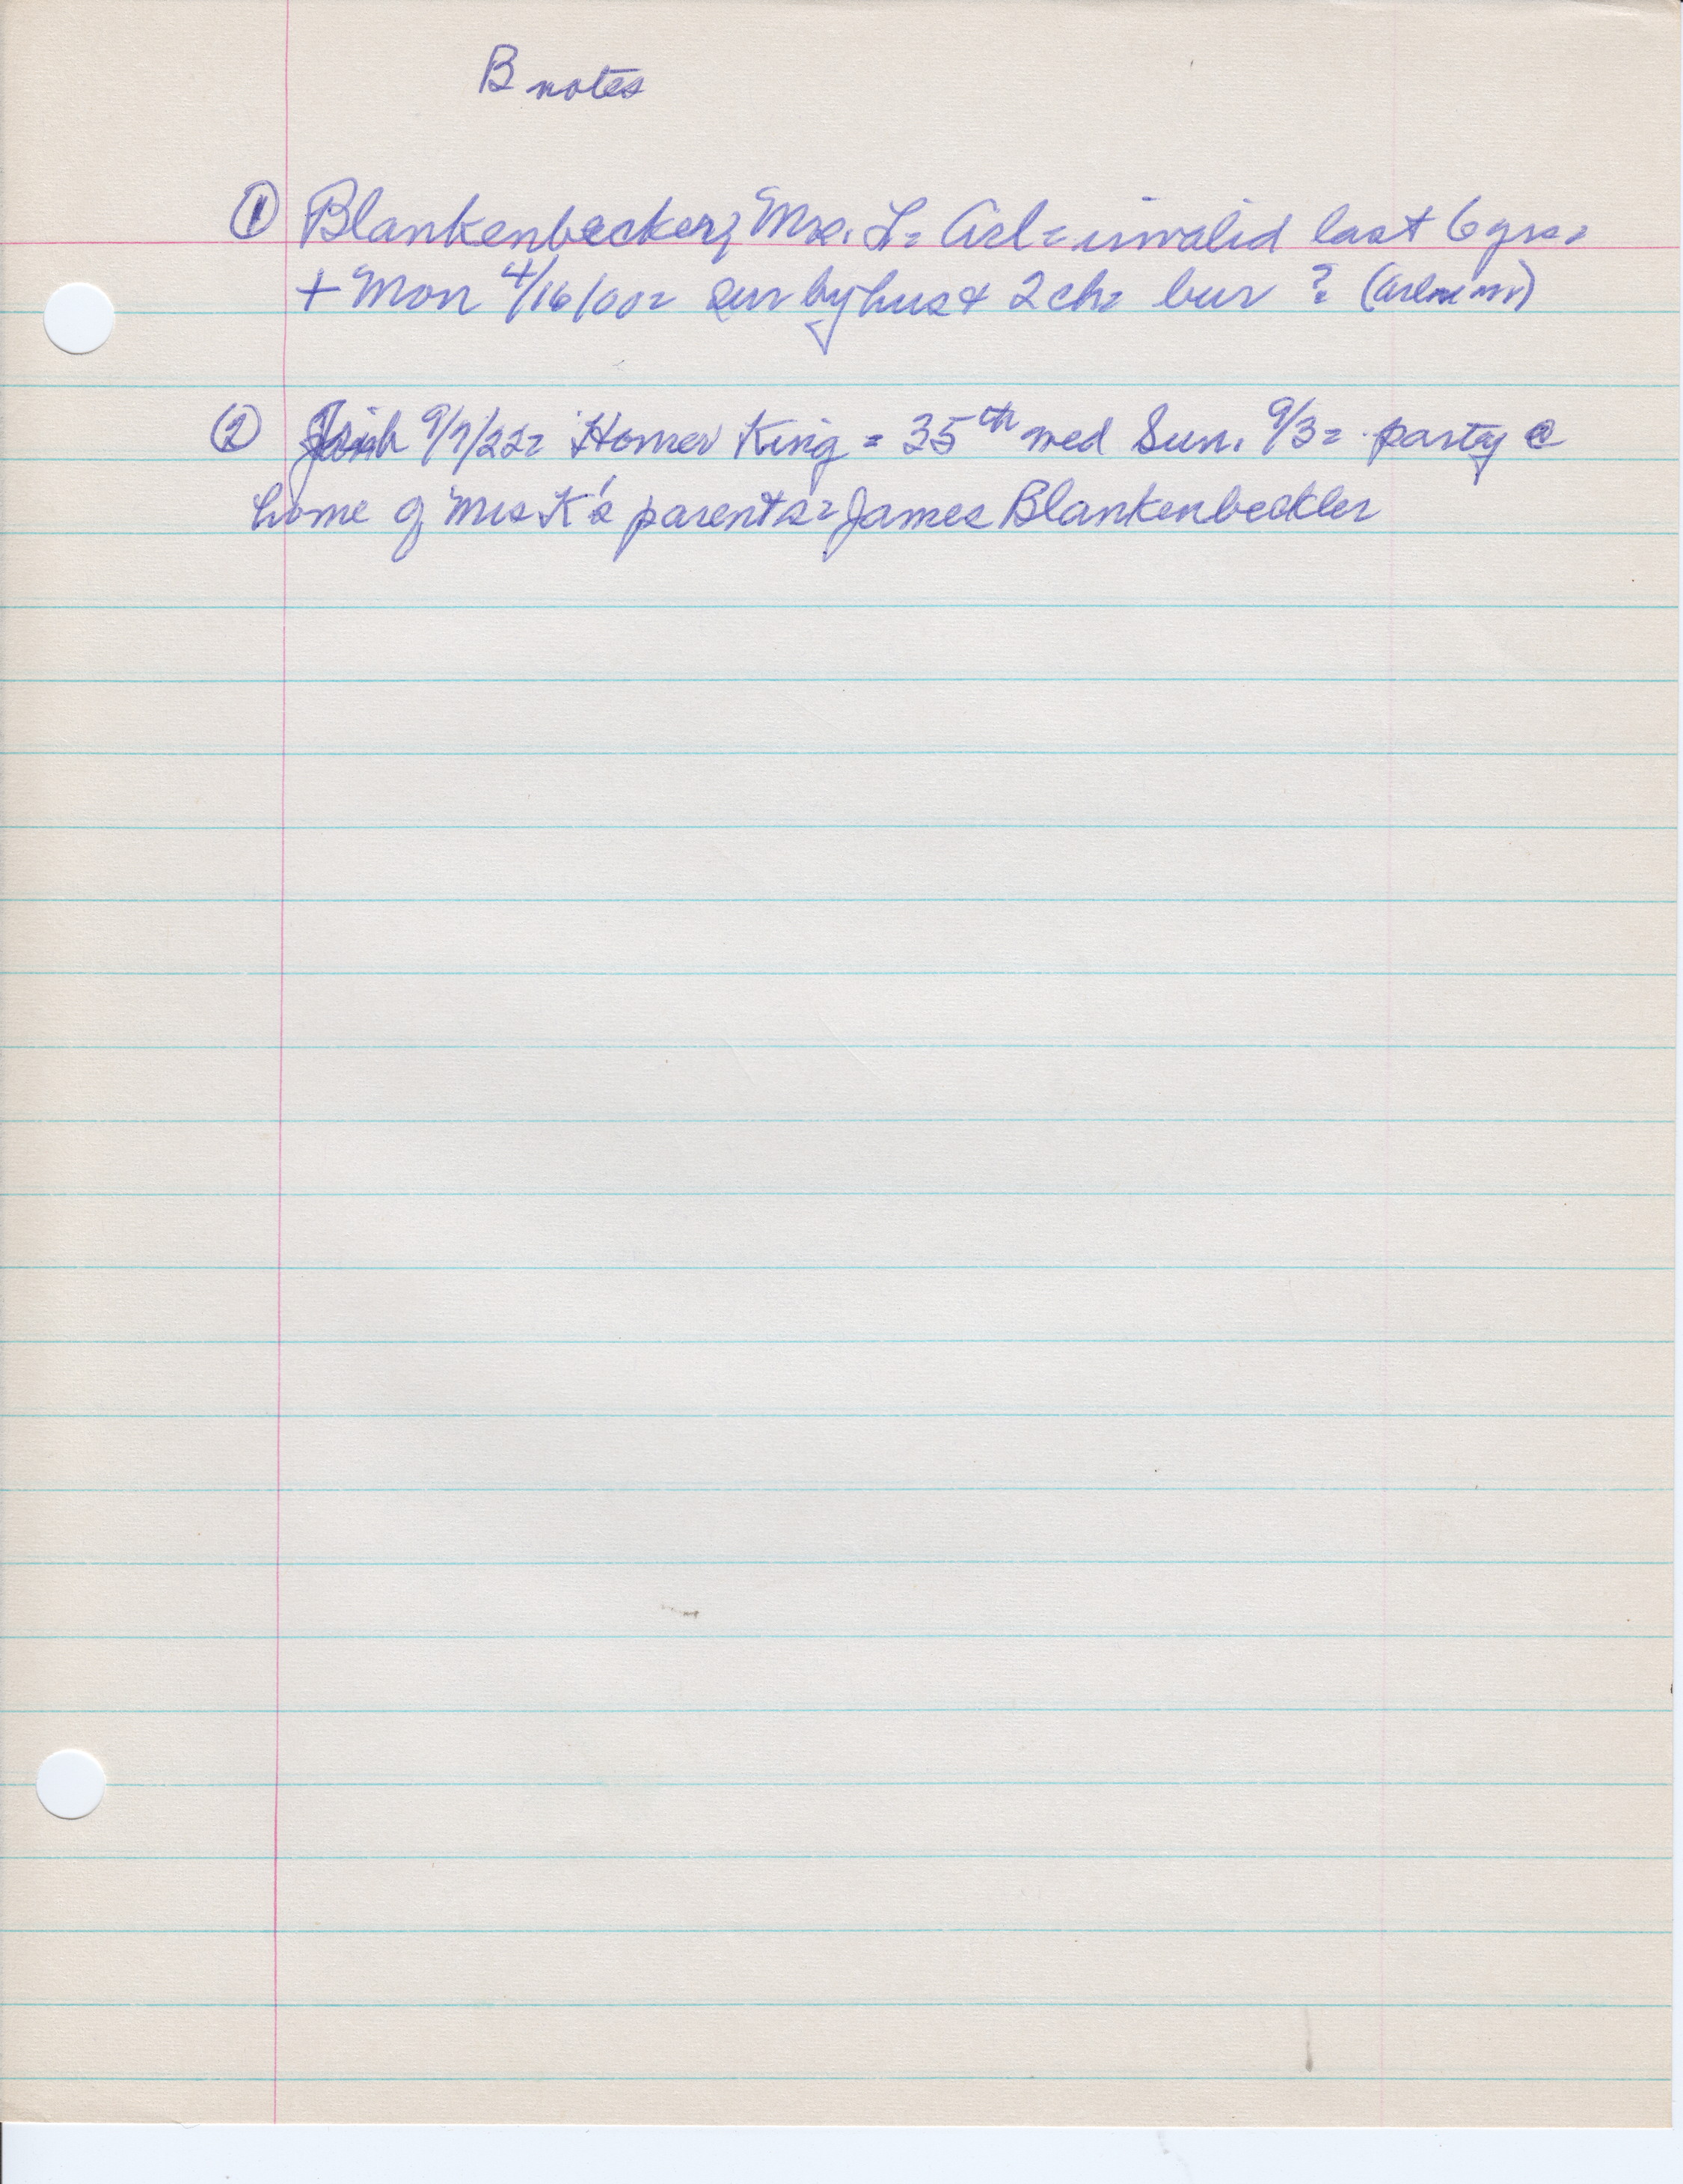 B notes
① Blankenbecker, Mrs. L = Arl = invalid last 6 yrs =
+ Mon 4/16/00 = sur by hus + 2 ch = bur ? (Arl
② 9/7/22 = Homer King = 35th wed Sun. 9/3 = party @
home of Mrs K's parents = James Blankenbeckler